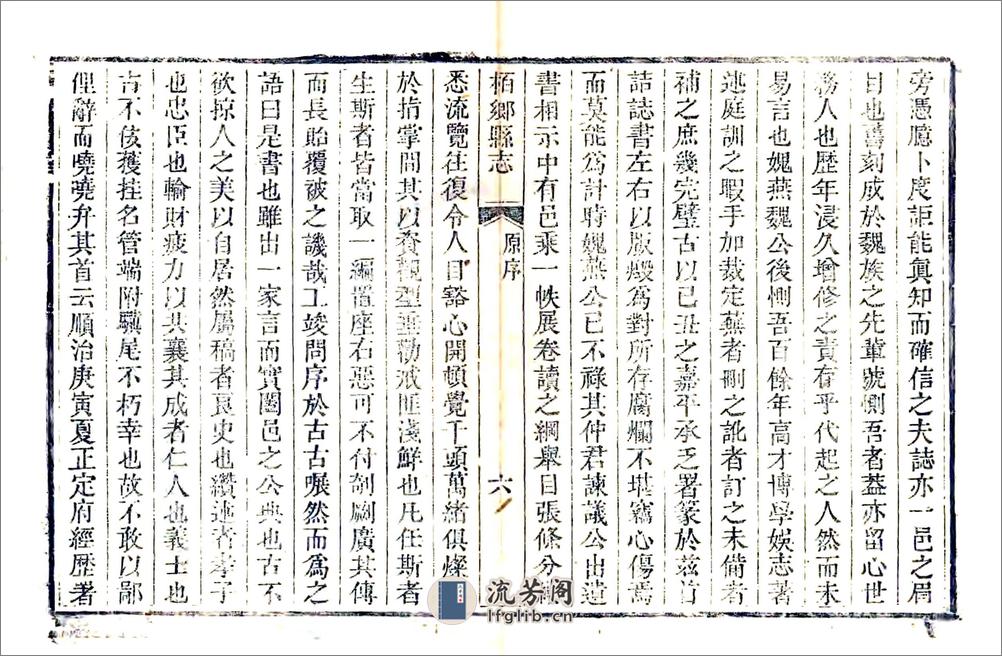 旁憑臆卜度詎能眞知而確信之夫誌亦一邑之眉
目也舊刻成於魏族之先輩號惻吾者葢亦留心世
務人也歷年浸久增修之責存乎代起之人然而未
易言也媿燕魏公後惻吾百餘年高才博學娛志著
述庭訓之暇手加裁定蕪者刪之訛者訂之未備者
補之庶幾完璧古以己丑之嘉平承乏署篆於兹首
詰誌書左右以版燬爲對所存腐爛不堪竊心傷焉
而莫能爲計時媿燕公已不祿其仲君諫議公出遺
書相示中有邑乘一帙展卷讀之綱舉目張條分縷
栢鄉縣志
原序
六
悉流覽往復令人目豁心開頓覺千頭萬緒俱燦
於指掌間其以資觀型垂勸戒匪淺鮮也凡任斯者
生斯者皆當取一編置座右惡可不付剞劂廣其傳
而長貽覆被之譏哉工竣問序於古古囅然而爲之
語曰是書也雖出一家言而實闔邑之公典也古不
欲掠人之美以自居然屬稿者良史也纘述者孝子
也忠臣也輸財疲力以共襄其成者仁人也義士也
古不佞獲挂名管端附驥尾不朽幸也故不敢以鄙
俚辭而嘵嘵弁其首云順治庚寅夏正定府經歷署
流芳閣
lfglib.cn